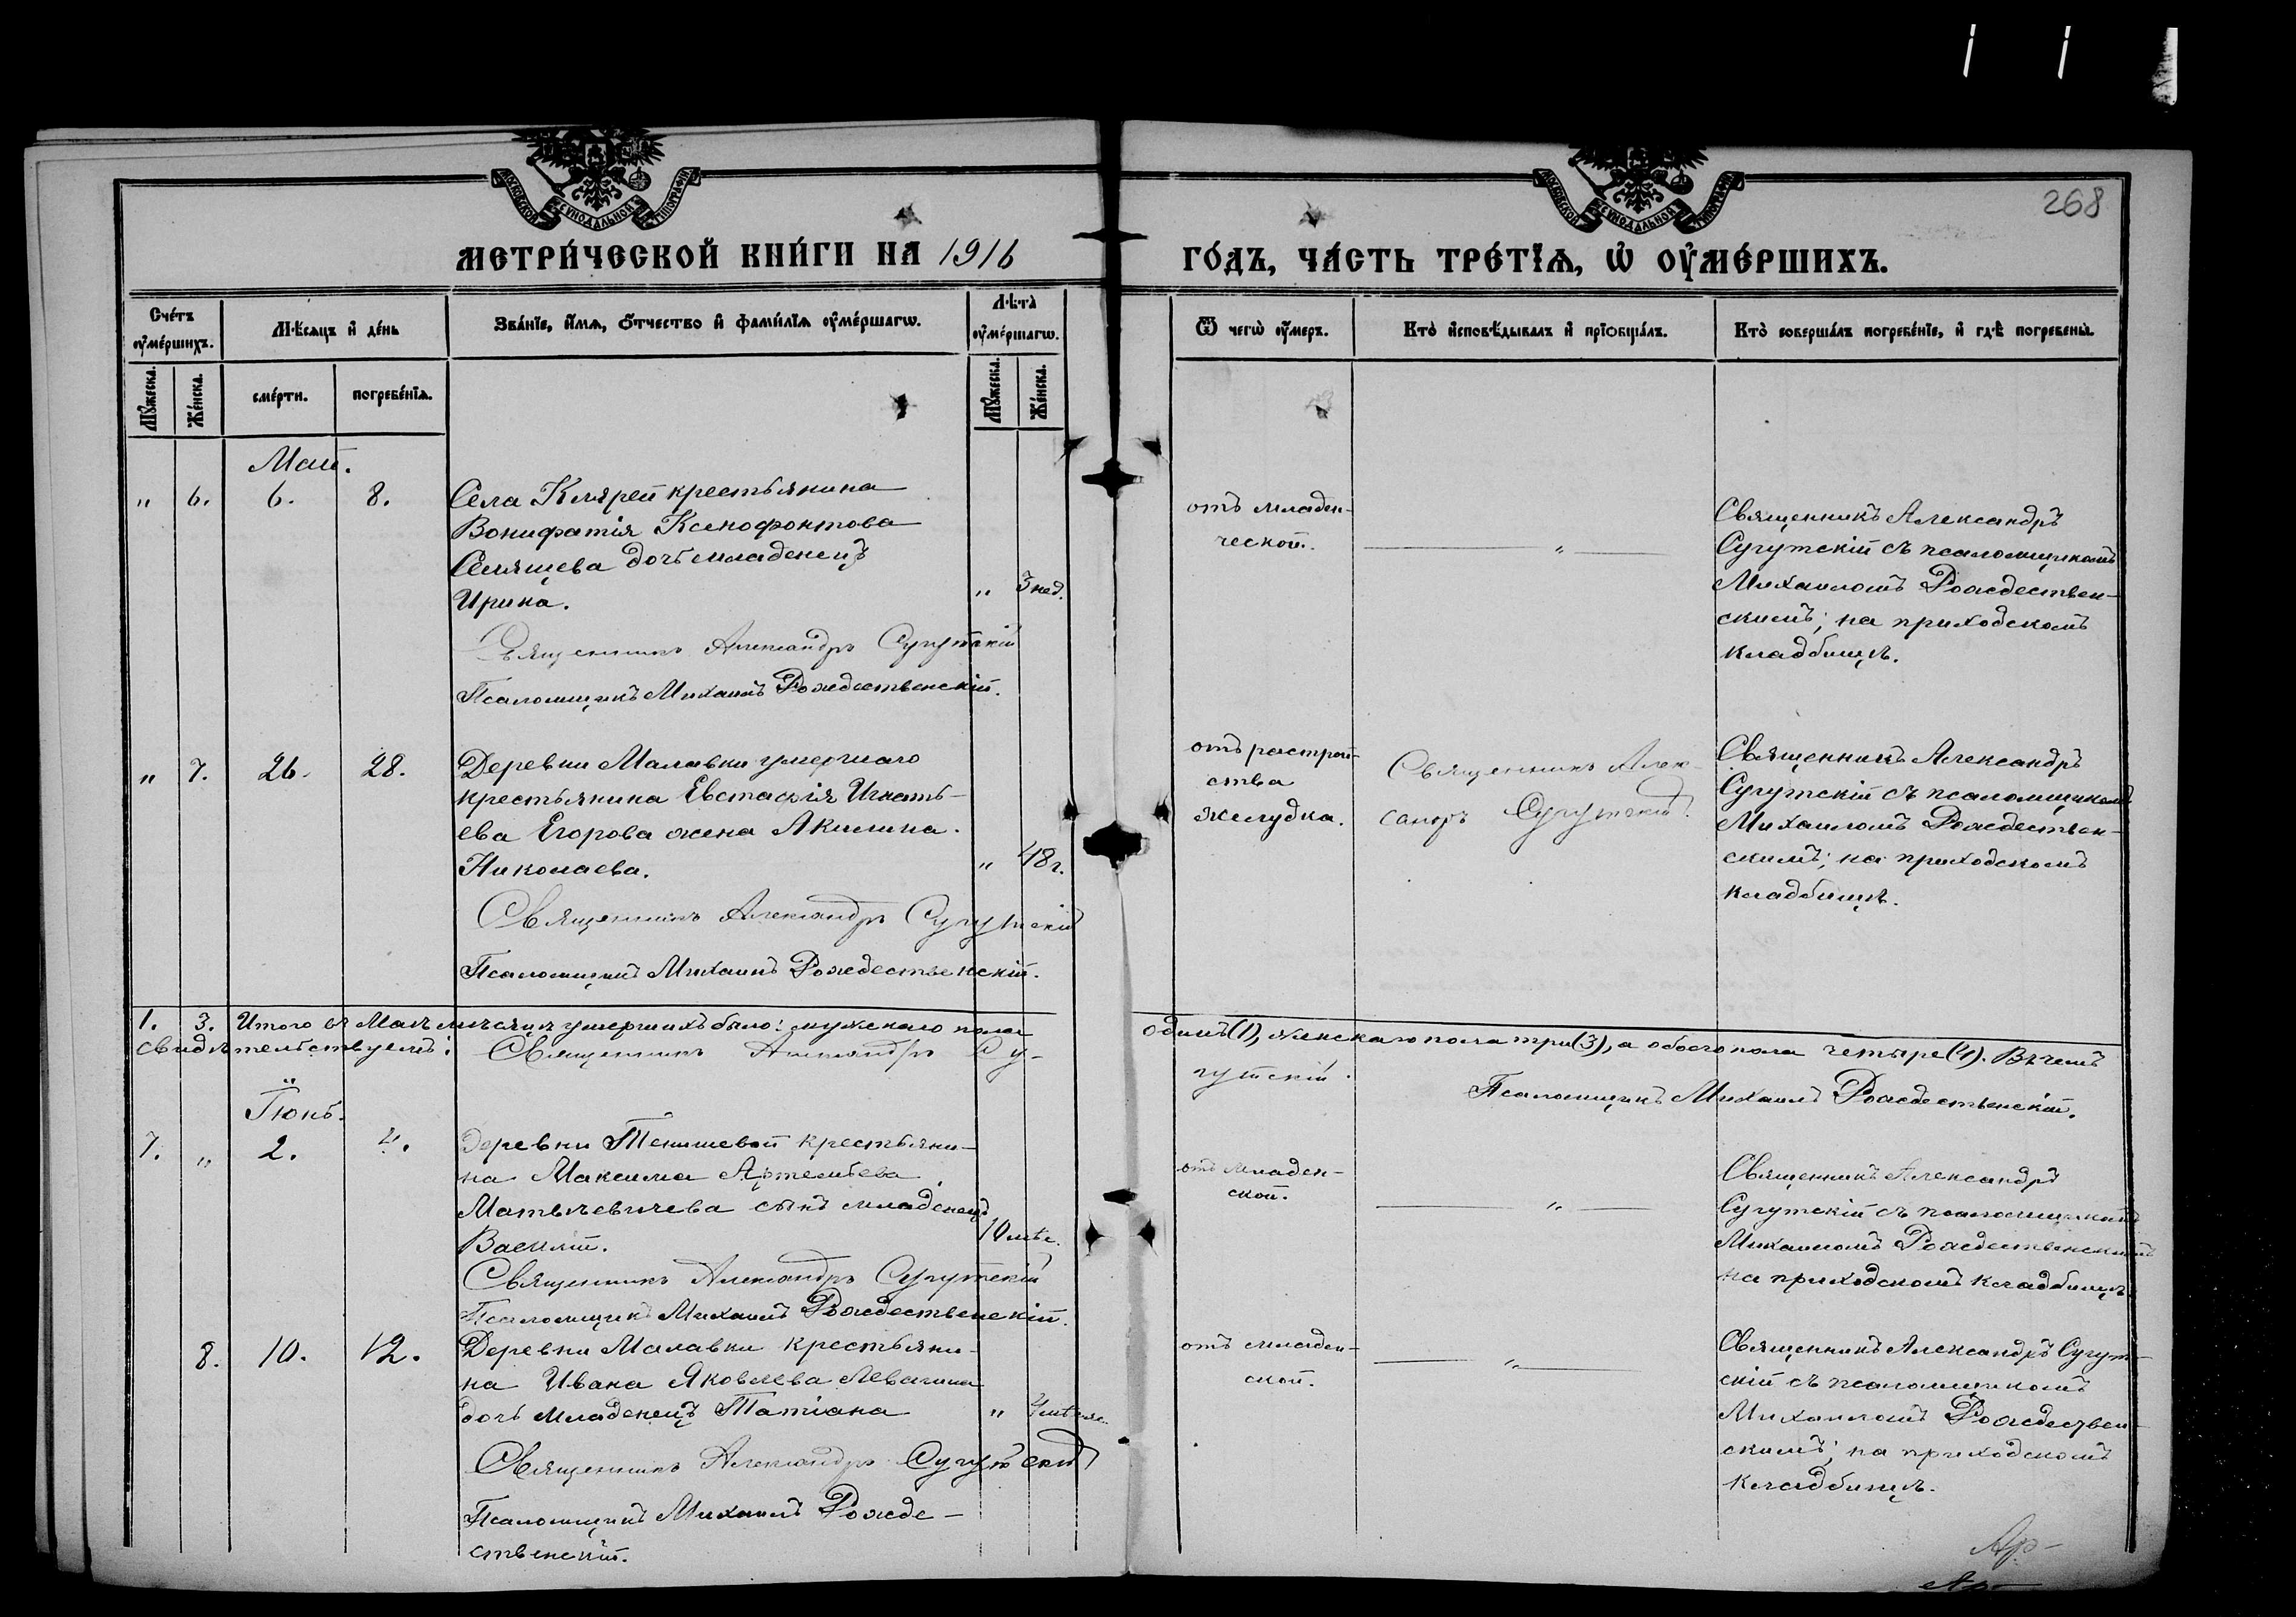 268
МОСКОВСКОЙ СѴНОДАЛЬНОЙ ТИПОГРАФІИ
МОСКОВСКОЙ СѴНОДАЛЬНОЙ ТИПОГРАФІИ
МЕТРИ́ЧЕСКОЙ КНИ́ГИ НА 1916 ГО́ДЪ, ЧА́СТЬ ТРЕ́ТІѦ, Ѡ҆ ОУ҆МЕ́РШИХЪ.
Сче́тъ оу҆ме́ршихъ.
Мѣ́сѧцъ и҆ де́нь
Зва́нїе, и҆́мѧ, ѻ҆́тчество и҆ фами́лїѧ оу҆ме́ршагѡ.
Лѣ́та оу҆ме́ршагѡ.
Ѿ чегѡ̀ оу҆́меръ.
Кто̀ и҆сповѣ́дывалъ и҆ прїѡбща́лъ.
Кто̀ соверша́лъ погребе́нїе, и҆ гдѣ̀ погребены̀.
Мꙋ́жеска.
Же́нска.
сме́рти.
погребе́нїѧ.
Мꙋ́жеска.
Же́нска.
Май.
" 6. 6. 8.
Села крестьянина
Вонифатія Ксенофонтова
дочь младенецъ
Ирина. " 3 нед.
Священникъ Александръ Сугутскій
Псаломщикъ Михаилъ Рождественскій.
отъ младен-
ческой.
"
Священникъ Александръ
Сугутскій съ псаломщикомъ
Михаиломъ Рождествен-
скимъ; на приходскомъ
кладбищѣ.
" 7. 26. 28.
Деревни Малавки умершаго
крестьянина Евстафія Игнать-
ева Егорова жена Акилина
Николаева. " 48 г.
Священникъ Александръ Сугутскій
Псаломщикъ Михаилъ Рождественскій.
отъ растрой-
ства
желудка.
Священникъ Алек-
сандръ Сугутскій.
Священникъ Александръ
Сугутскій съ псаломщикомъ
Михаиломъ Рождествен-
скимъ; на приходскомъ
кладбищѣ.
1. 3. Итого въ Маѣ мѣсяцѣ умершихъ было: мужскаго пола одинъ (1), женскаго пола три (3), а обоего пола четыре (4). Въ чемъ
свидѣтельствуемъ: Священникъ Александръ Су-
гутскій.
Псаломщикъ Михаилъ Рождественскій.
Іюнь.
7. " 2. 4.
Деревни Тенишевой крестьяни-
на Максима Артемьева
Матвѣевичева сынъ младенецъ
Василій. 10 мѣс.
Священникъ Александръ Сугутскій
Псаломщикъ Михаилъ Рождественскій.
отъ младен-
ской.
"
Священникъ Александръ
Сугутскій съ псаломщикомъ
Михаиломъ Рождественскимъ
на приходскомъ кладбищѣ
8. 10. 12.
Деревни Малавки крестьяни-
на Ивана Яковлева
дочь младенецъ Татіана "
Священникъ Александръ Сугутскій
Псаломщикъ Михаилъ Рожде-
ственскій.
отъ младен-
ской.
"
Священникъ Александръ Сугут-
скій съ псаломщикомъ
Михаиломъ Рождествен-
скимъ; на приходскомъ
кладбищѣ.
Ар-